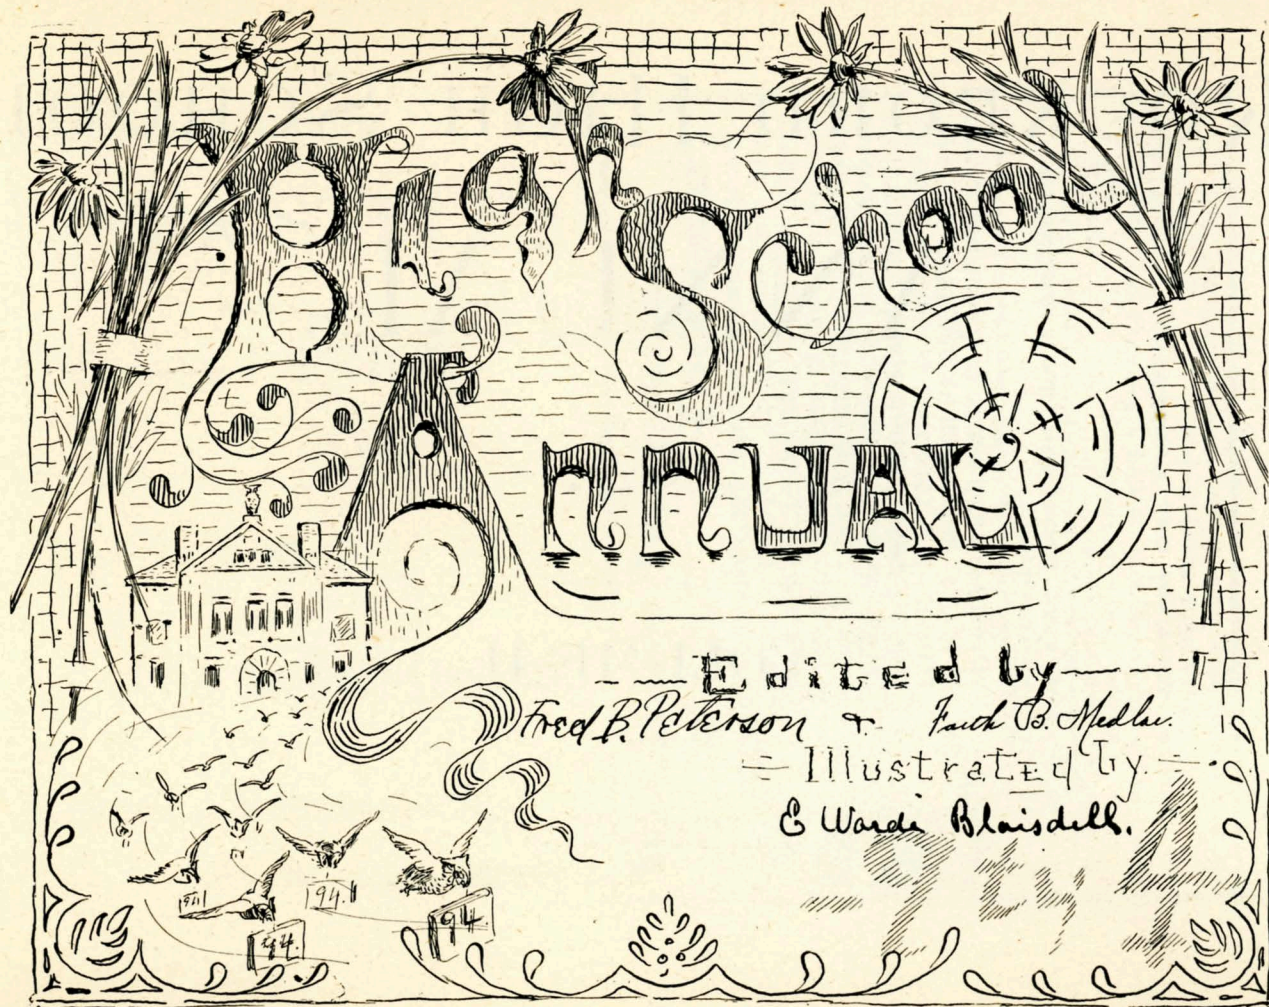 High School
Annual
Edited by
Fred B. Peterson & Faith B. Medlar.
Illustrated by
E Warde Blaisdell.
9ty4
94
'94.
94
94.